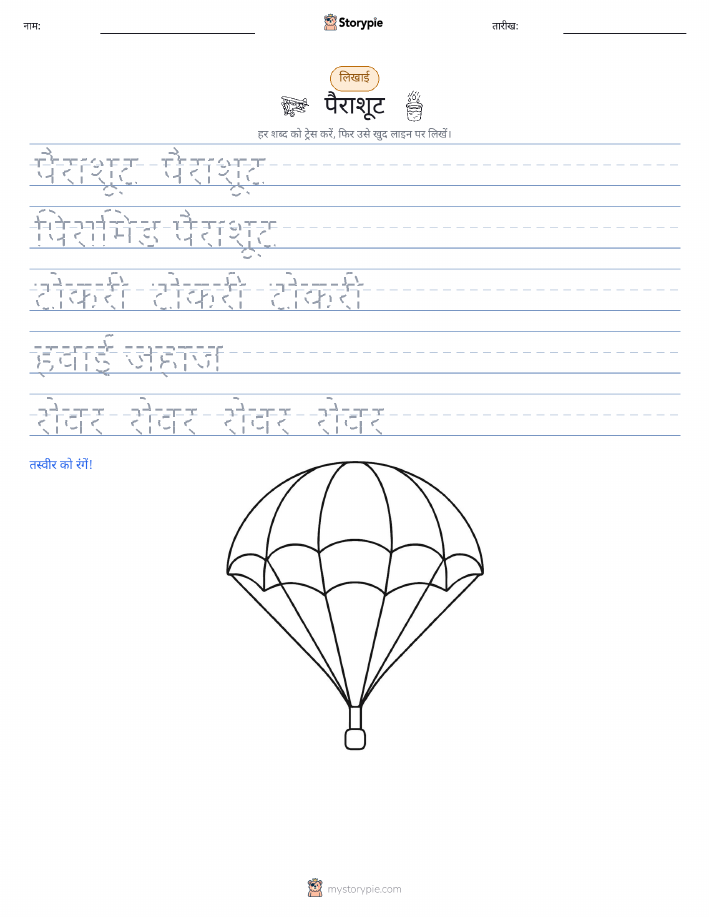 नाम:
Storypie
तारीख:
लिखाई
पैराशूट
हर शब्द को ट्रेस करें, फिर उसे खुद लाइन पर लिखें।
पैराशूट पैराशूट
पिरामिड पैराशूट
टोकरी टोकरी टोकरी
हवाई जहाज
रोवर रोवर रोवर रोवर
तस्वीर को रंगें!
mystorypie.com